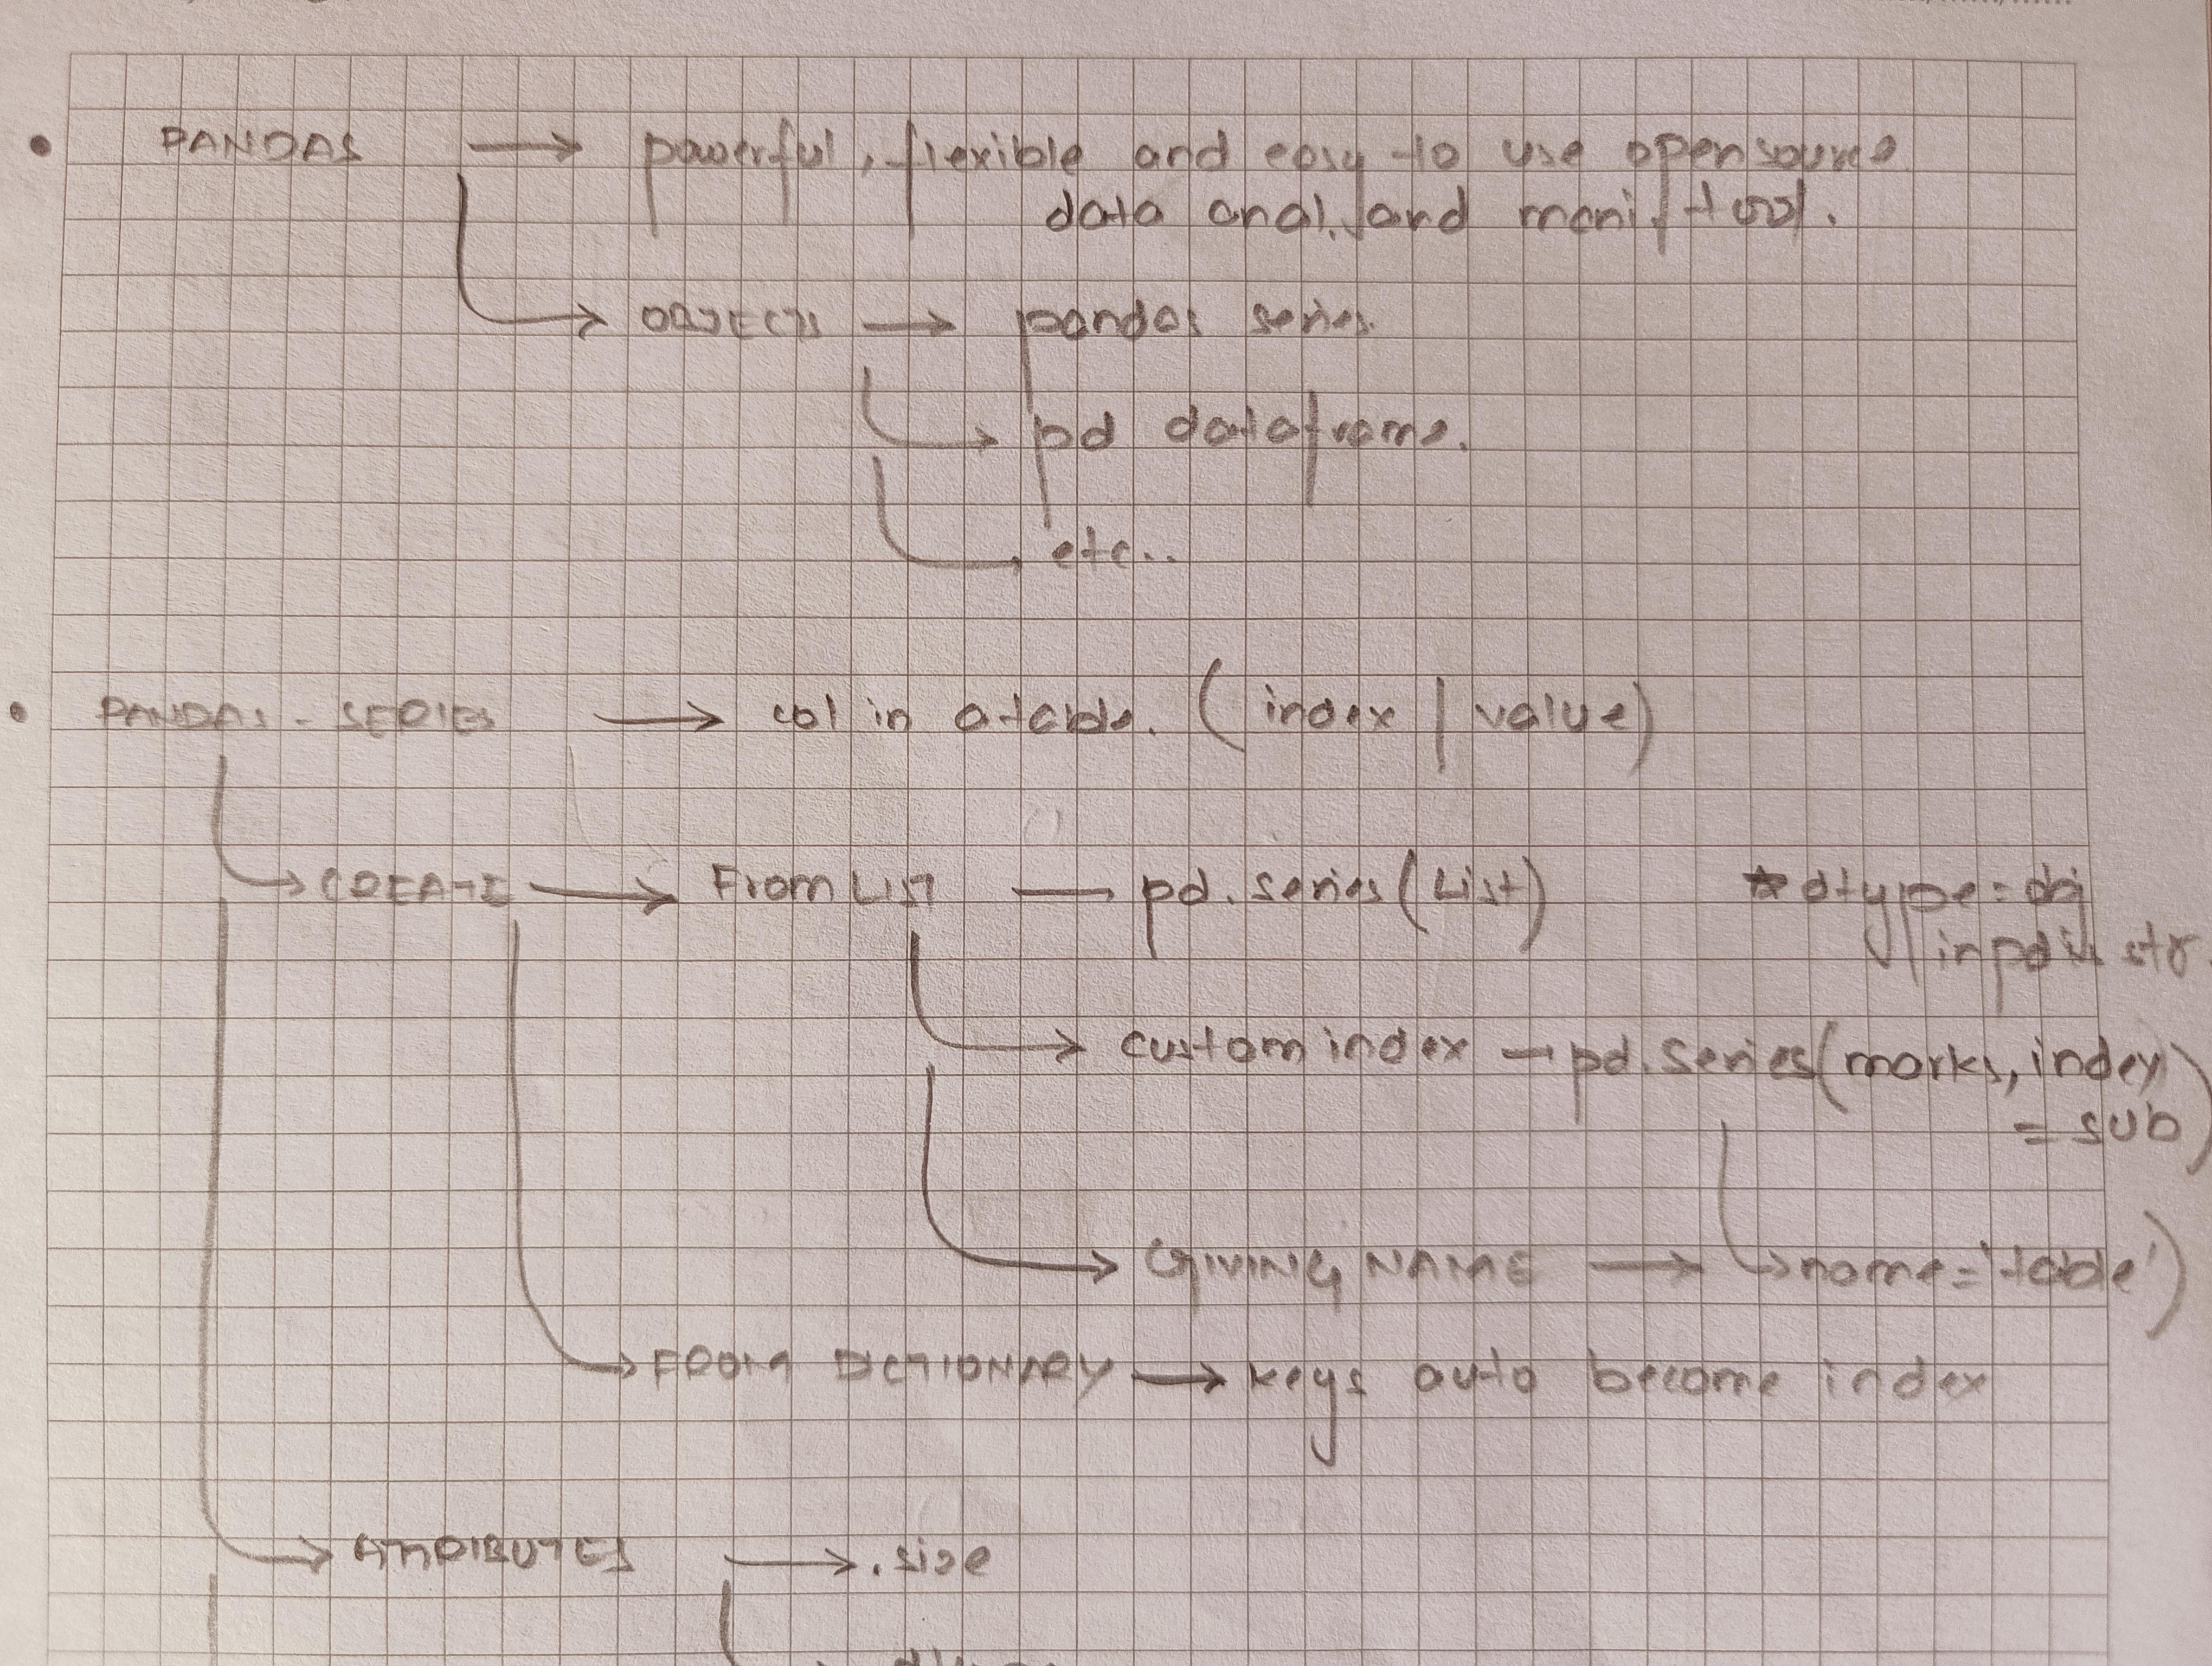 PANDAS → powerful, flexible and easy to use opensource
data anal. and mani. tool.
OBJECTS → pandas series.
pd dataframe.
etc..
PANDAS - SERIES → col in a table. (index | value)
CREATE → From LIST — pd. series (List) * dtype = obj
in pd is str.
custom index → pd. series (marks, index
= sub)
GIVING NAME → name = 'table')
FROM DICTIONARY → keys auto become index
ATTRIBUTES → .size